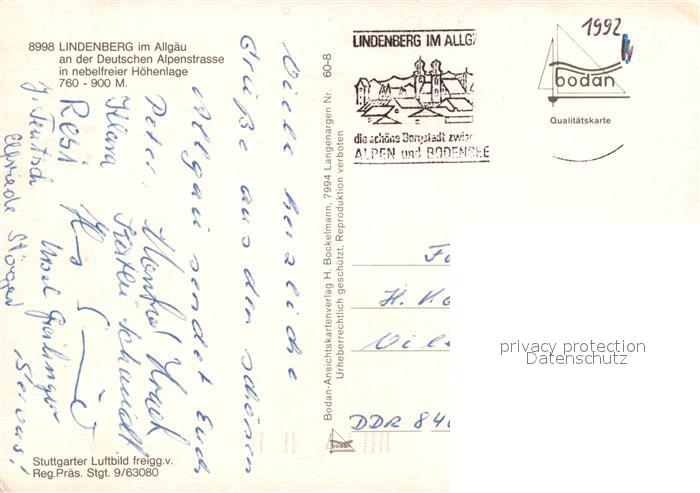 8998 LINDENBERG im Allgäu
an der Deutschen Alpenstrasse
in nebelfreier Höhenlage
760 - 900 M.
Viele herzliche
Grüße aus dem schönen
Allgäu sendet Euch
Peter, Manfred
Klara
Resi
J. Teutsch
Elfriede
Servus!!
Stuttgarter Luftbild freigg.v.
Reg.Präs. Stgt. 9/63080
Bodan-Ansichtskartenverlag H. Bockelmann, 7994 Langenargen Nr. 60-8
Urheberrechtlich geschützt, Reproduktion verboten
bodan
LINDENBERG IM ALLGÄ
die schöne Bergstadt zwisc
ALPEN und BODENSEE
1992
bodan
Qualitätskarte
Fa
H. Ko
Vils
DDR 840
privacy protection
Datenschutz